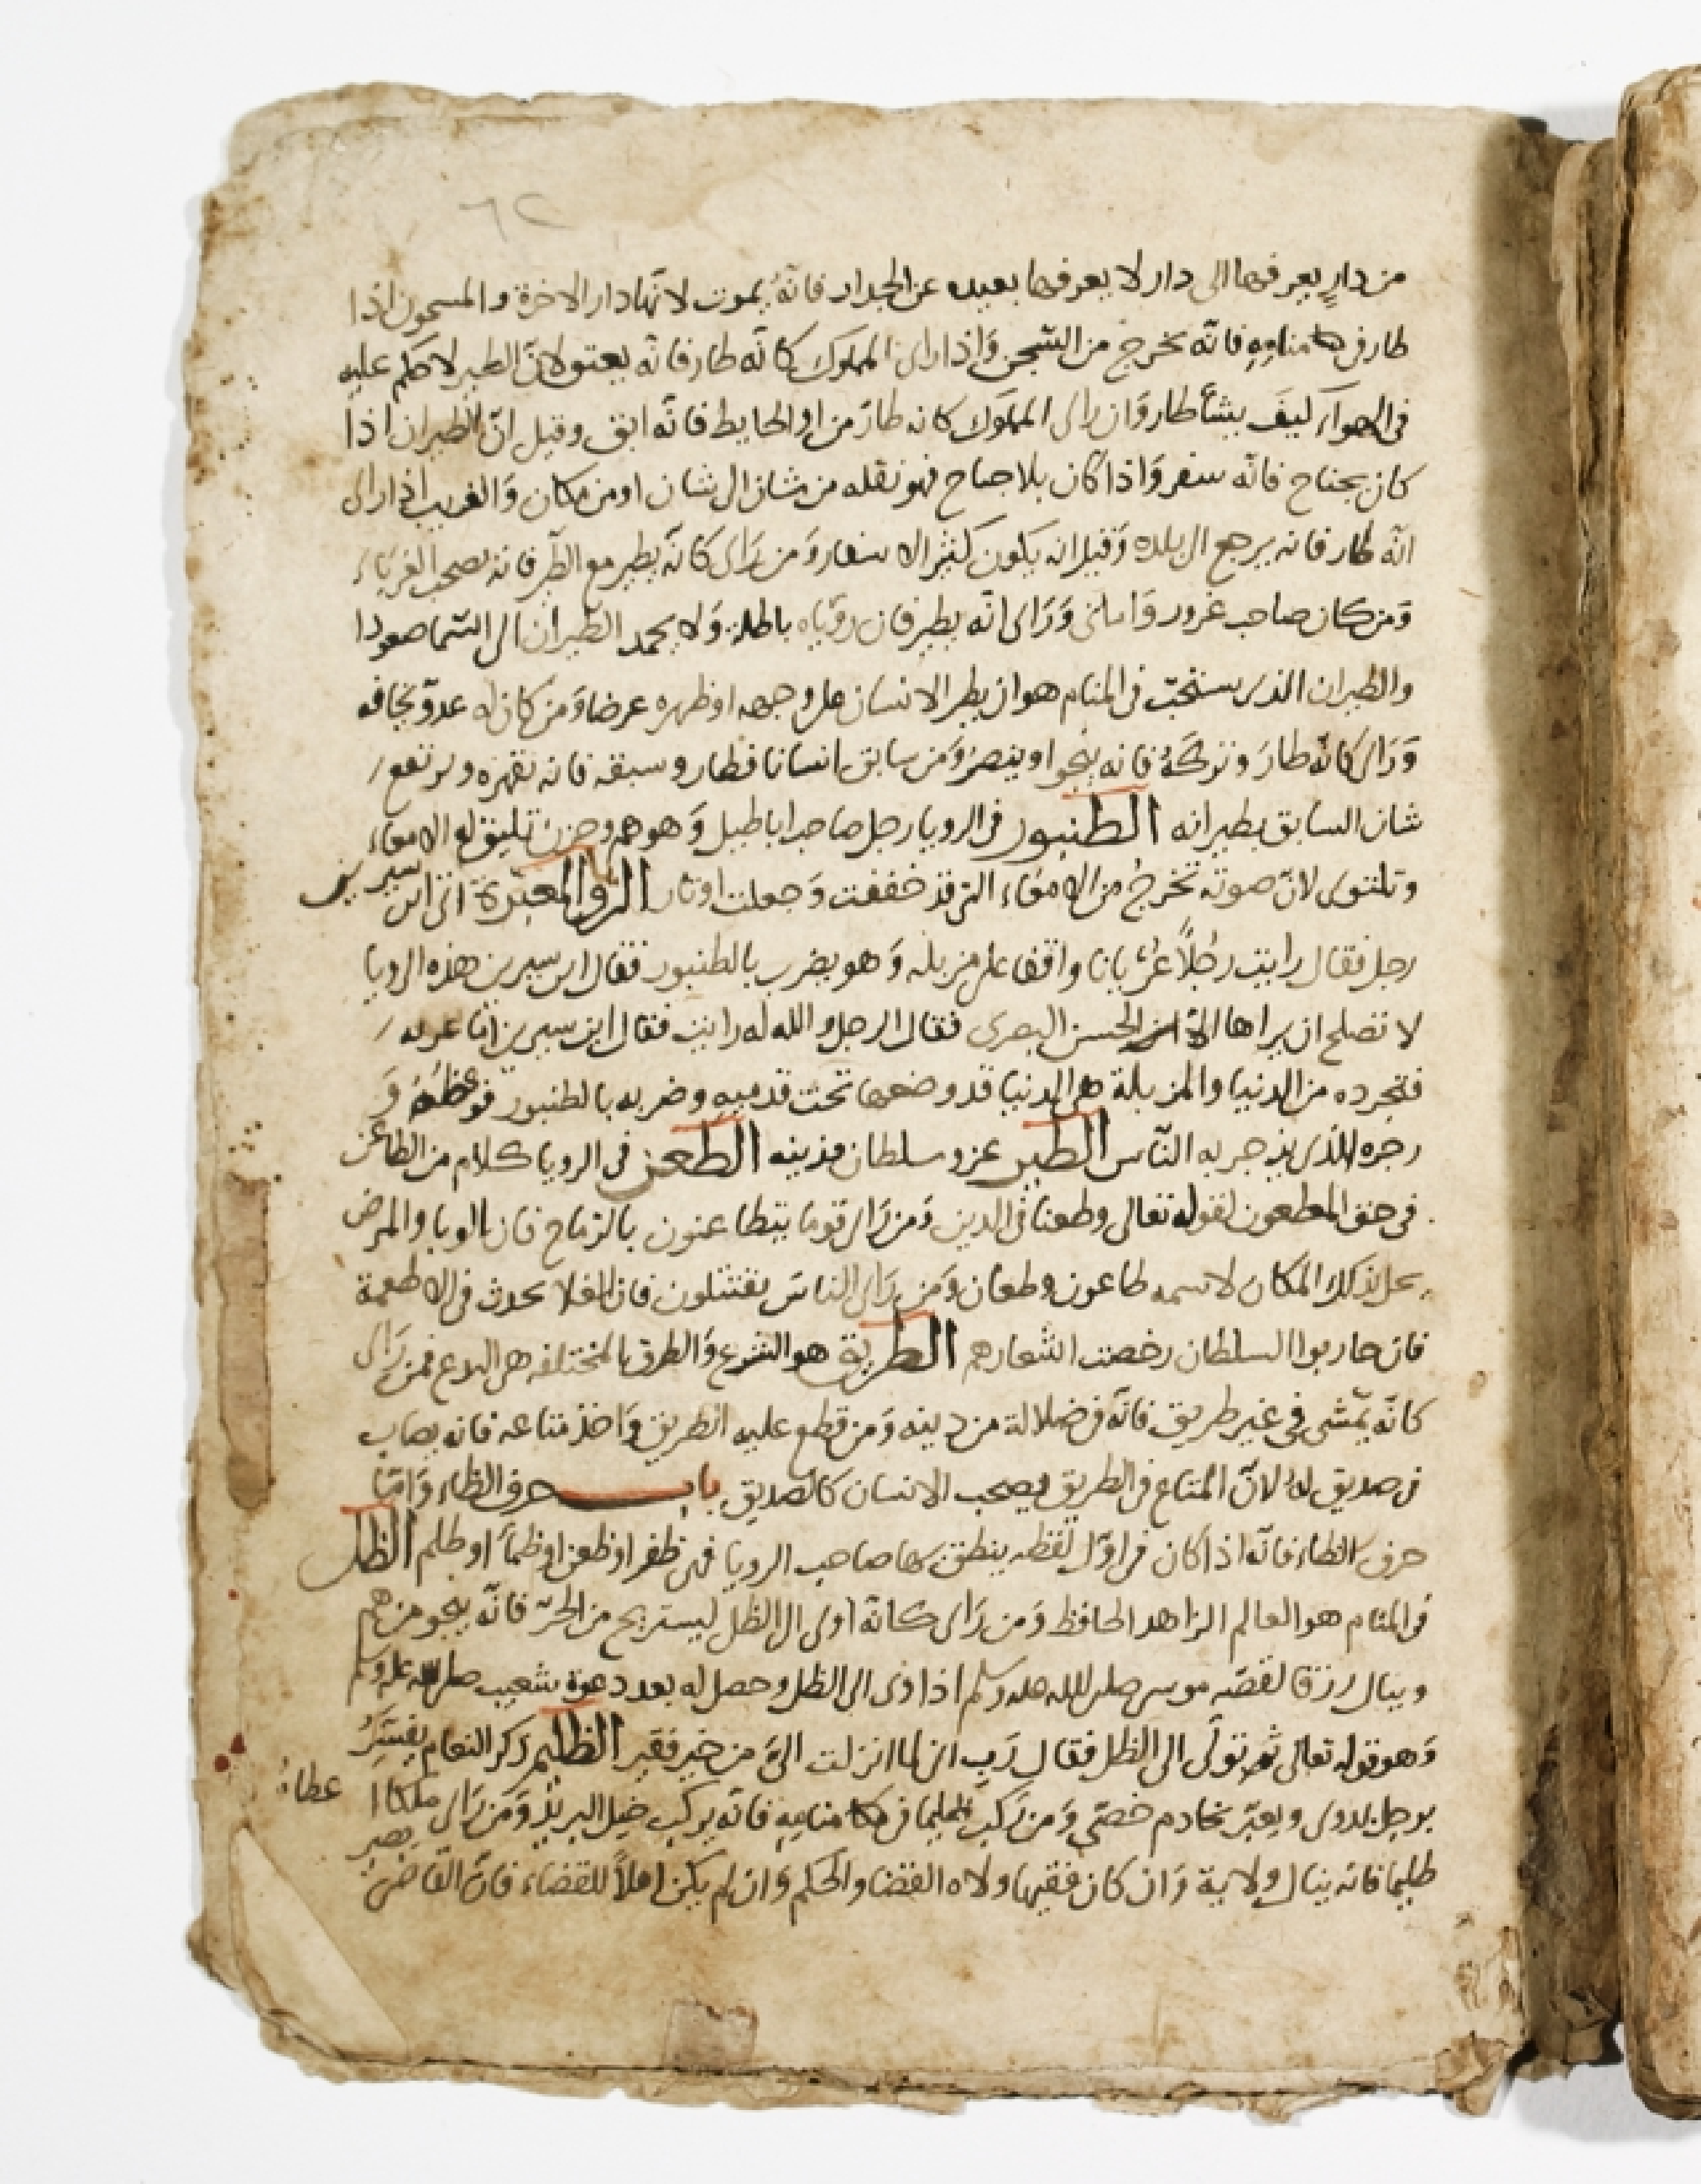 ٦٢
من دارٍ يعرفها الى دار لا يعرفها بعيده عن الجدار فانّه يموت لانّها دار الاخرة والمسجون اذا
طار فى منامه فانّه يخرج من السّجن وَاذا راى المملوك كانّه طار فانّه يعتق لانّ الطير لا حكم عليه
فى الهوآ كيف يشأ طار وَان راى المملوك كانه طارَ من او الحايط فانّه ابق وقيل انّ الطيران اذا
كان بجناح فانّه سفر وَاذا كان بلا جناح فهو نقله من شان الى شان او من مكان وَالغريب اذا راى
انّه طار فانه يرجع الى بلده وَقيل انه يكون كثير الاسفار وَمن رَاى كانّه يطير مع الطّير فانه يصحب الغربَاء
وَمن كان صاحب غرور وَامانى وَرَاى انّه يطير فان روياه باطله وَلا يحمد الطّيران الى السّما صعودا
والطيران الذى يستحبّ فى المنام هو ان يطير الانسان على وجهه او ظهره عرضا وَمن كان له عدوّ يخافه
وَرَاى كانّه طارَ وتركهُ فانه ينجو او ينصرُ وَمن سابق انسانا فطار وسبقه فانه يقهره ويرتفع
شان السابق بطيرانه الطنبور فى الرويا رجل صاحب اباطيل وَهو هم وحزن تليق له الامعاء
وتلتوى لانّ صوته تخرجُ من الامعَاء التى قد خففت وَجعلت اوتار الرويا المعبّرة اتى ابن سيرين
رجل فقال رايت رجُلاً عُريانا واقفا على مزبله وَهو يضرب بالطنبور فقال ابن سيرين هذه الرويا
لا تصلح ان يراها الا الحسن البصرى فقال الرجل والله له رايت فقال ابن سيرين امّا عريه
فتجرده من الدنيا والمزبلة هى الدنيا قد وضعها تحت قدميه وضربه بالطنبور فوعظهُ وَ
زجره الذى يزجر به النّاس الطير عز وسلطان وزينه الطعن فى الرويا كلام من الطاعن
فى حق المطعون لقوله تعالى وطعنا فى الدين وَمن رَاى قوما يتطاعنون بالرّماح فان الوبا والمرض
يحل بذلك المكان لاسمه طاعون وطعان وَمن رَاى الناسَ يقتتلون فان الغلا يحدث فى الاطعمة
فان حاربوا السلطان رخصت اشعارهم الطريق هو الشرع وَالطرق المختلفه هى البدع فمن رَاى
كانّه يمّشى فى غير طريق فانّه فى ضلالة من دينه وَمن قطع عليه الطريق وَاخذ متاعه فانه يصاب
فى صديق لهُ لانّ المتاع فى الطريق يصحب الانسان كالصديق باب حرف الظاء وَامّا
حرف الظاء فانّه اذا كان فى اوّل لفظه ينطق بها صاحب الرويا فهى ظفر او ظعن او ظمأ او ظلم الظل
فى المنام هو العالم الزاهد الحافظ وَمن رَاى كانّه اوى الى الظل ليستريح من الحرّ فانّه ينجو من هم
وينال رزقا لقصّه موسى صلى الله عليه وسلم اذ اوى الى الظل وحصل له بعد دعوة شعيب صلى الله عليه وسلم
وَهو قوله تعالى ثم تولّى الى الظل فقال رَب انى لما انزلت الىّ من خير فقير الظليم ذكر النعام يفسّرُ
برجل بدوى ويعبّر بخادم خصّى وَمن رَكب ظليما فى منامه فانّه يركب خيل البريدُ وَمَن رَاى ملكا اعطاهُ
ظليما فانه ينال ولاية وَان كان فقيها ولاه القضا والحكم وَان لم يكن اهلاً للقضاء فانّ القاضى يصير